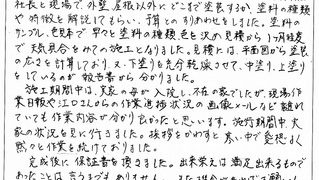 社長と現場で外壁、屋根以外にどこまで塗装するか、塗料の種類
や特徴を解説してもらい、予算とのすりあわせをしました。塗料のサ
ンプル、色見本で早々と塗料の種類、色を決め見積から1ヶ月程度
で天気具合をみての施工となりました。見積には、平面図から塗装
の広さを計算しており、又、下塗りを充分乾燥させて、中塗り、上塗り
をしているのが報告書から分かりました。
施工期間中は、実家の母が入院し、不在の家でしたが、現場作
業日報や江口さんからの作業進捗状況の画像メールなど離れて
いても作業内容が分かり良かったと思います。施行期間中、実
家の状況を見に行きました。挨拶をかわすと、暑い中で愛想よく
黙々と作業を続けておりました。
完成後に保証書を頂きました。出来栄えは満足出来るもので
あったことは言うまでもありません。